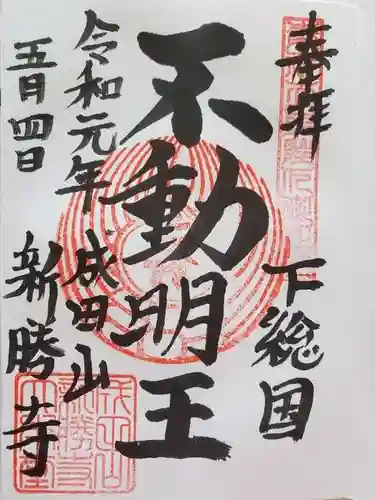 奉拝
下総国
不動明王
令和元年
五月四日
成田山
新勝寺